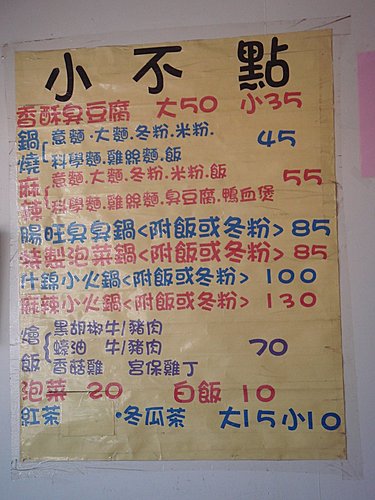 小不點
香酥臭豆腐 大50 小35
鍋燒 意麵.大麵.冬粉.米粉. 45
科學麵.雞絲麵.飯
麻辣 意麵.大麵.冬粉.米粉.飯 55
科學麵.雞絲麵.臭豆腐.鴨血煲
腸旺臭臭鍋<附飯或冬粉>85
特製泡菜鍋<附飯或冬粉>85
什錦小火鍋<附飯或冬粉> 100
麻辣小火鍋<附飯或冬粉> 130
燴飯 黑胡椒牛/豬肉
蠔油 牛/豬肉 70
香菇雞 宮保雞丁
泡菜 20 白飯 10
紅茶 ·冬瓜茶 大15小10